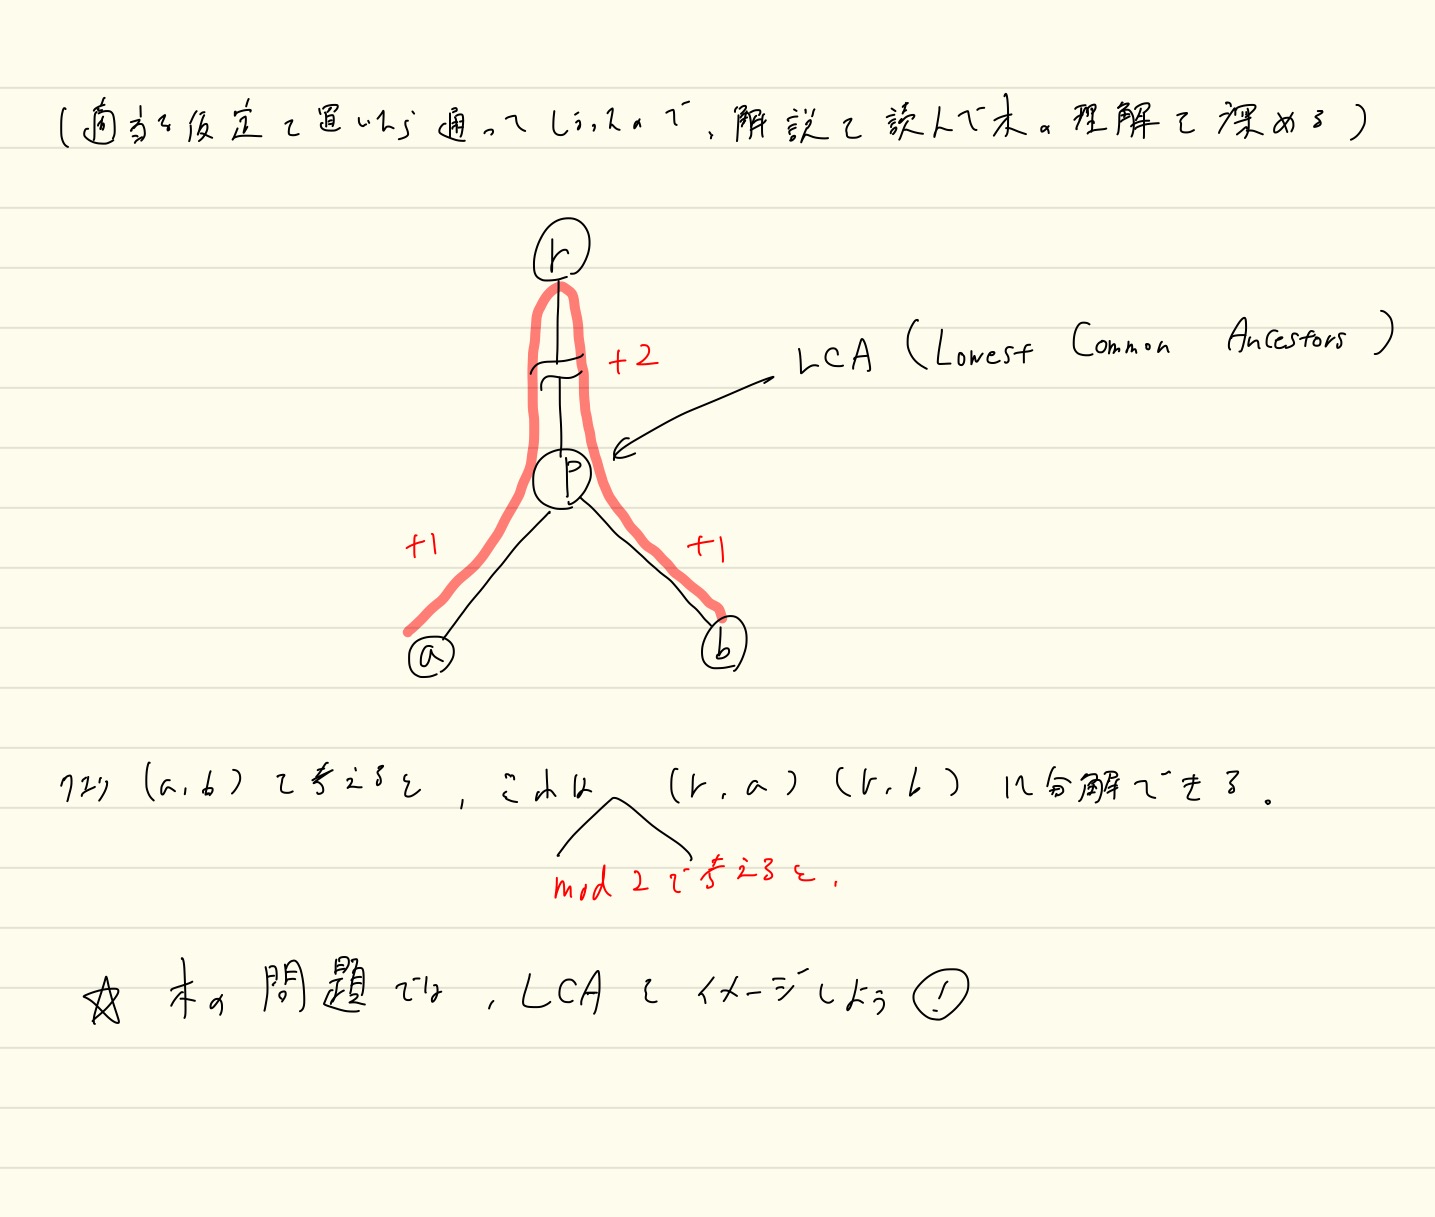 (適当な仮定を置いたら通ってしまったので、解説を読んで木の理解を深める)
r
+2
LCA (Lowest Common Ancestors)
p
+1
+1
a
b
クエリ (a, b) を考えると、これは (r, a) (r, b) に分解できる。
mod 2 で考えると、
☆ 木の問題では、LCA をイメージしよう!